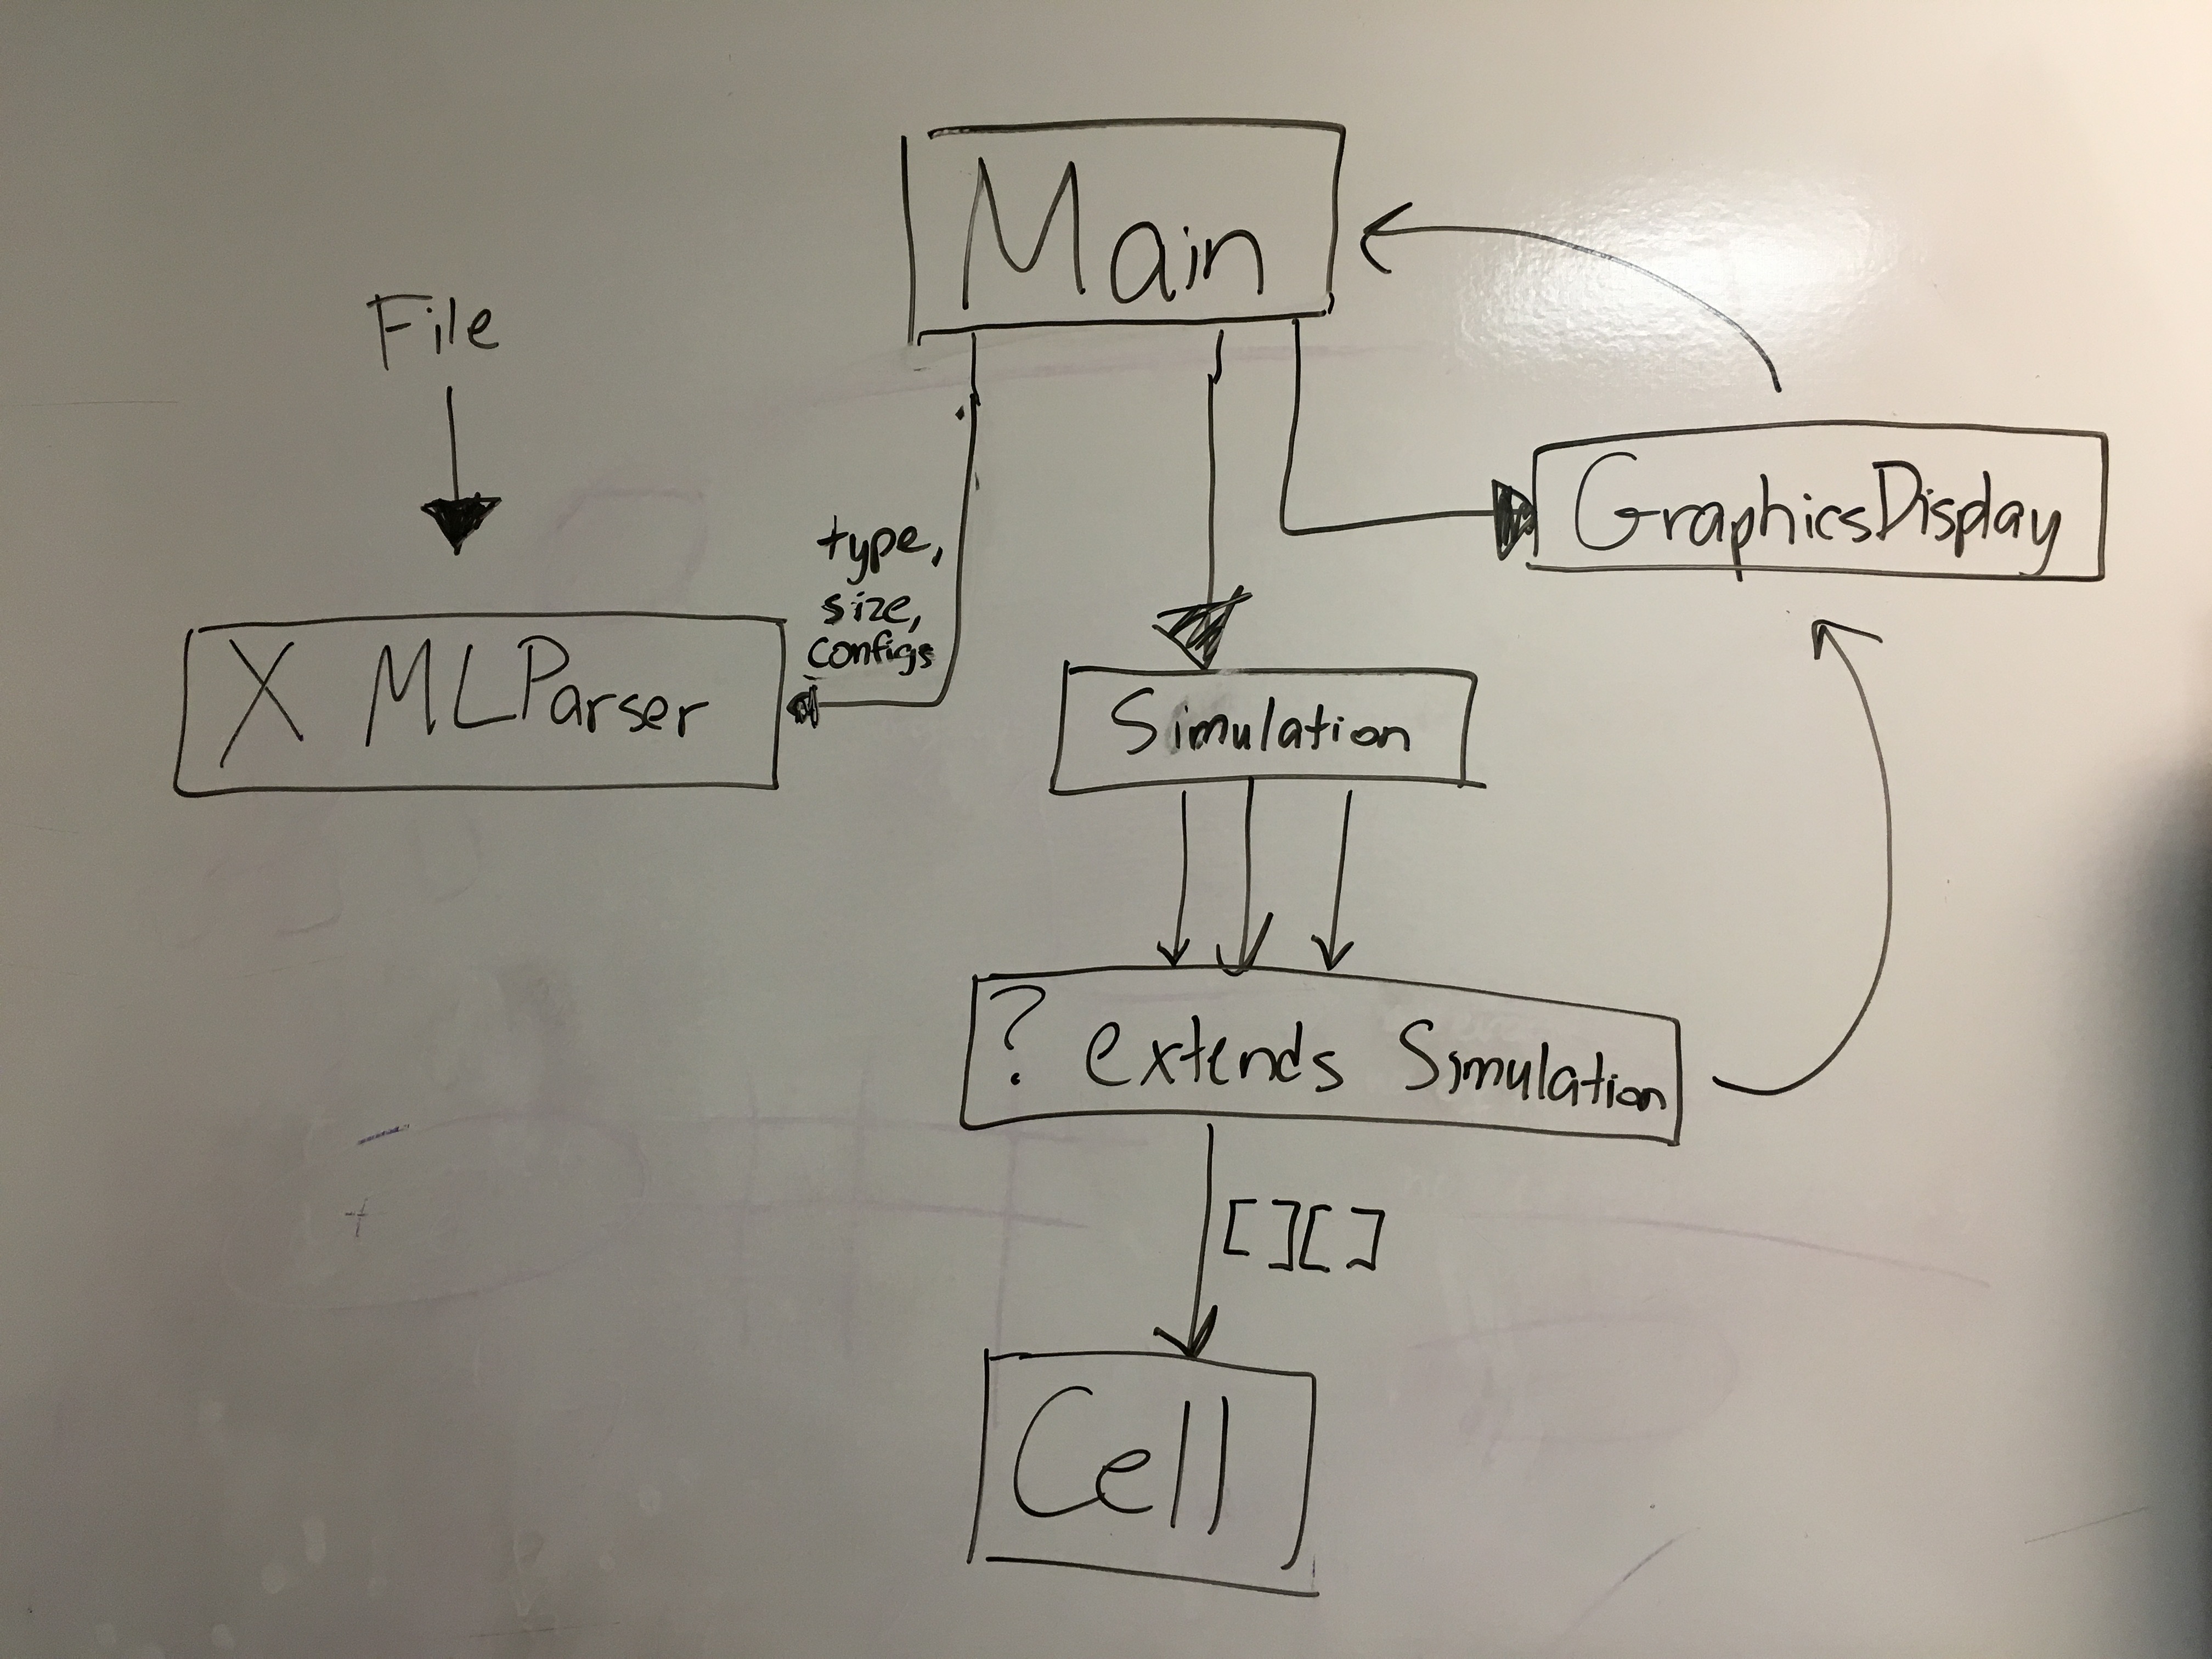 Main
File
GraphicsDisplay
type,
size,
configs
XMLParser
Simulation
? extends Simulation
[][]
Cell